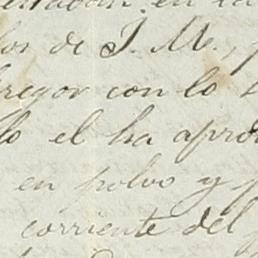 en la
los de J. M.,
regor con lo
lo el ha apro
en polvo y
corriente del